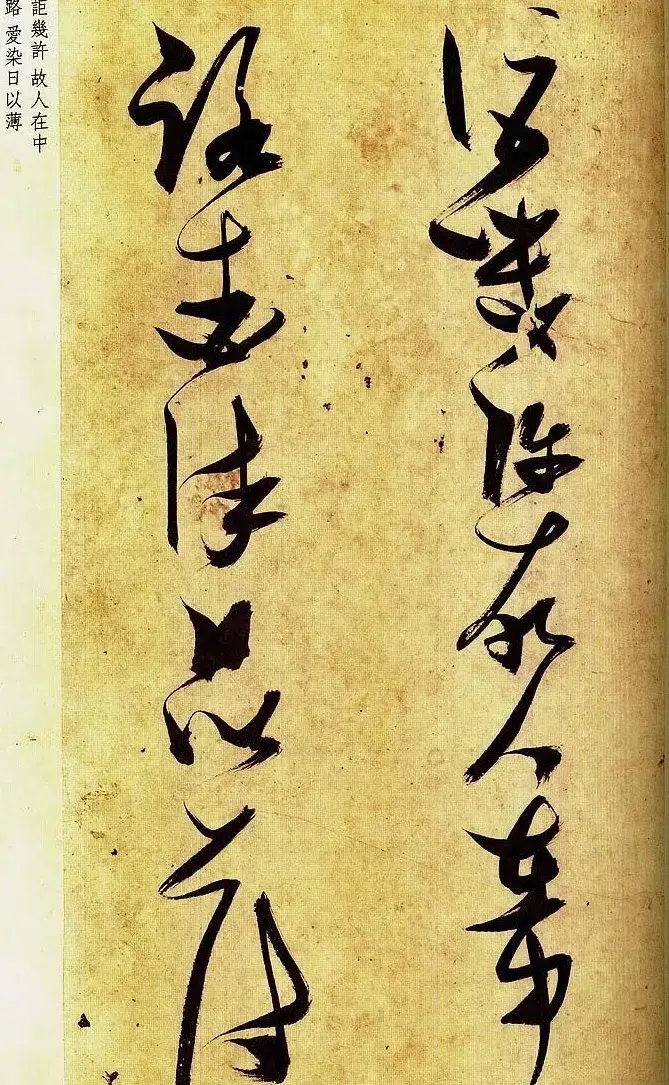 詎幾許故人在中
路愛染日以薄
詎幾許 故人在中
路 愛染日以薄